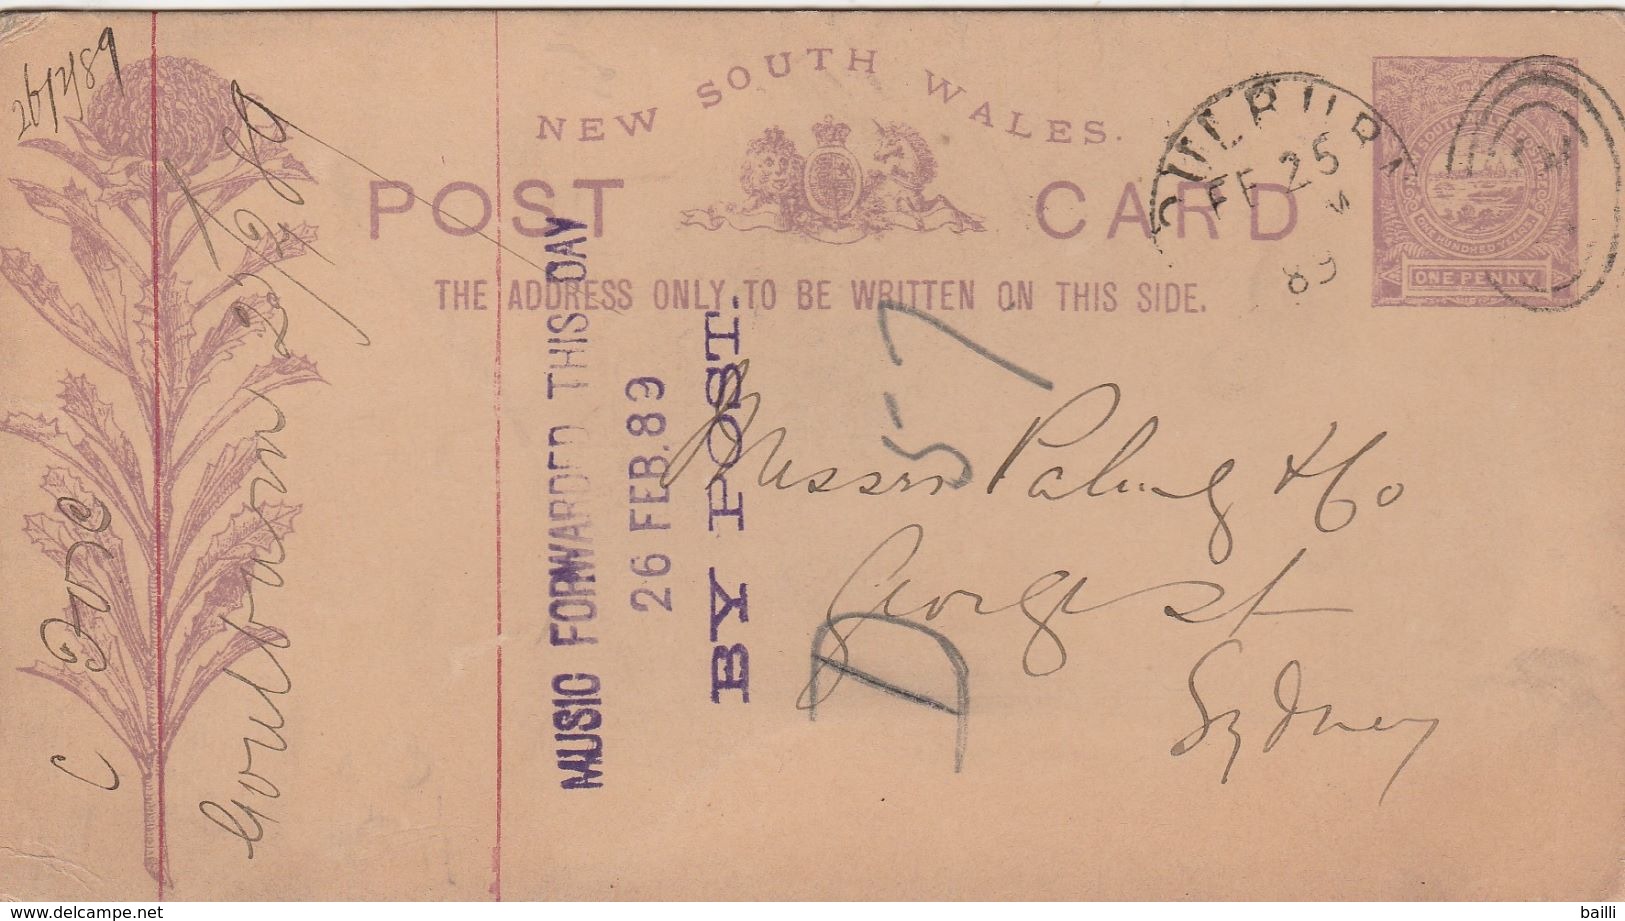 NEW SOUTH WALES.
POST CARD
THE ADDRESS ONLY TO BE WRITTEN ON THIS SIDE.
FE 25
89
ONE HUNDRED YEARS
ONE PENNY
MUSIC FORWARDED THIS DAY
26 FEB. 89
BY POST.
Messrs Paling & Co
George st
Sydney
D 57
26/2/89
Goulburn 25/2/89
© Delcampe.net
bailli